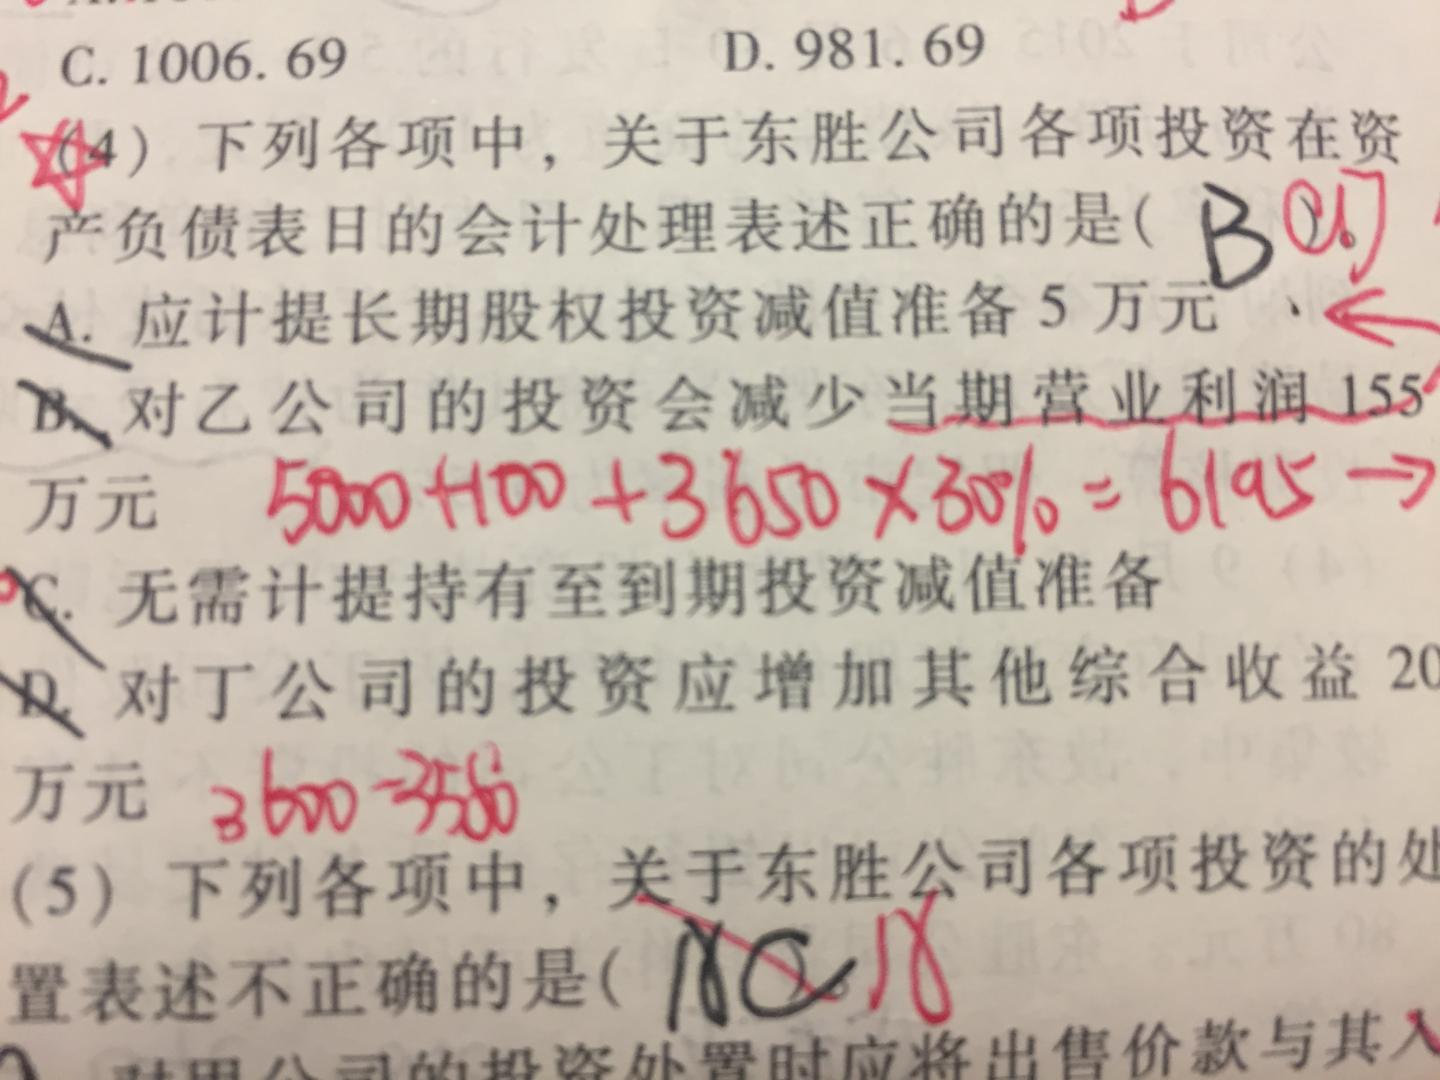 C. 1006. 69 D. 981. 69
(4) 下列各项中，关于东胜公司各项投资在资
产负债表日的会计处理表述正确的是( B )。
A. 应计提长期股权投资减值准备 5 万元
B. 对乙公司的投资会减少当期营业利润 155
万元 5000+100+3650×30%=6195→
C. 无需计提持有至到期投资减值准备
D. 对丁公司的投资应增加其他综合收益 20
万元 3600-3580
(5) 下列各项中，关于东胜公司各项投资的处
置表述不正确的是(
对甲公司的投资处置时应将出售价款与其入